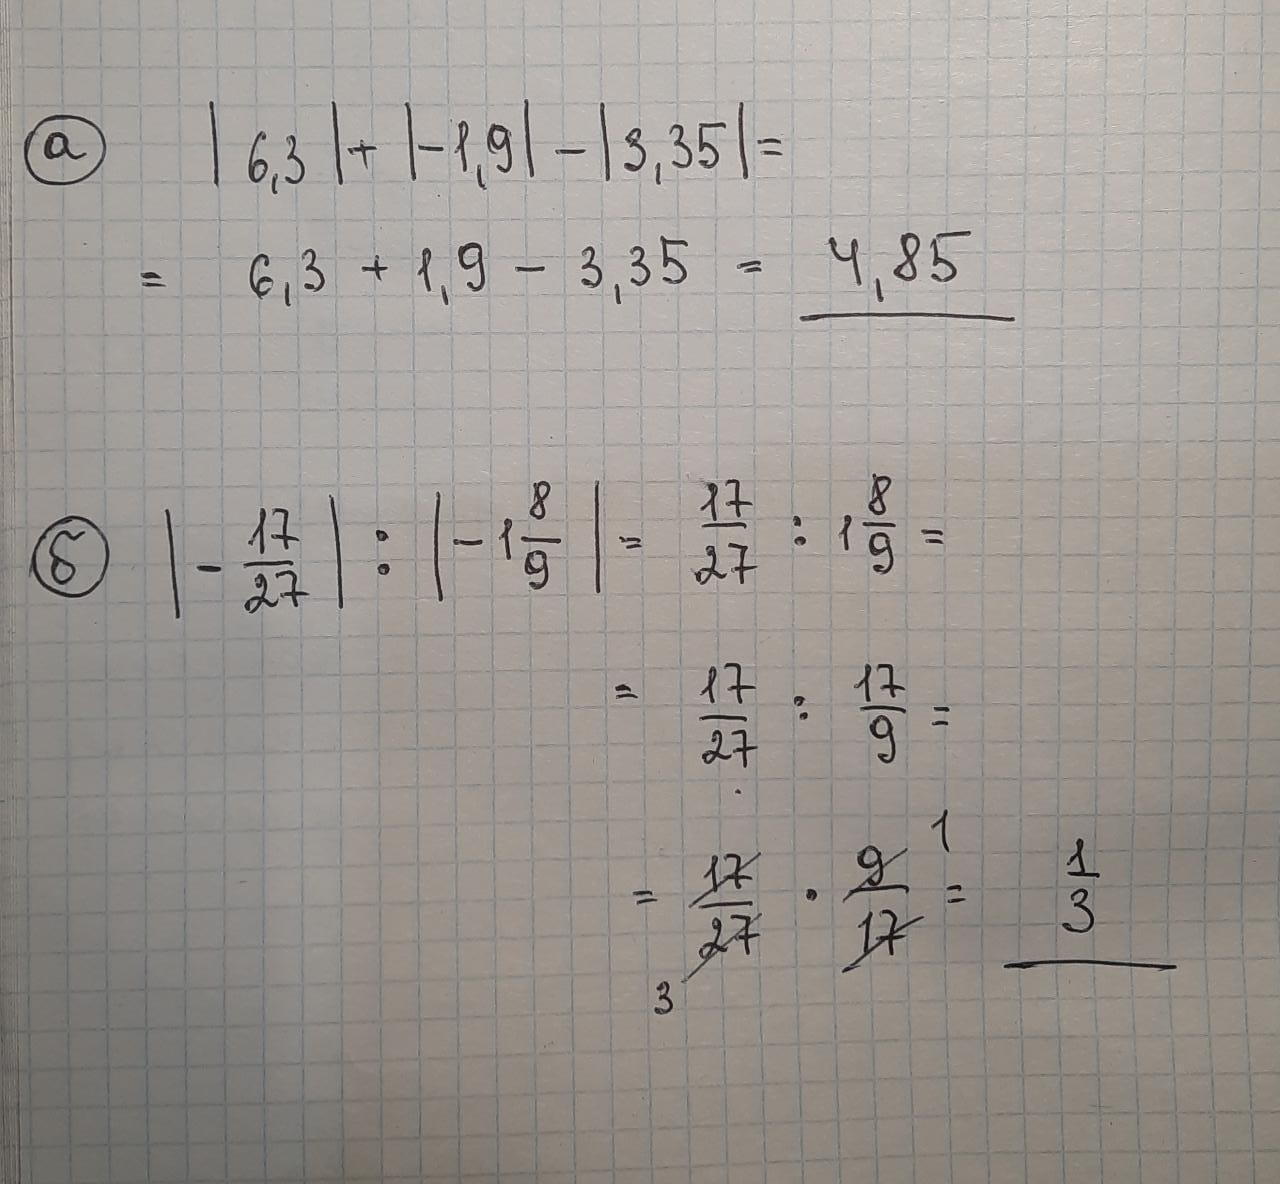 а |6,3| + |-1,9| - |3,35| =
= 6,3 + 1,9 - 3,35 = 4,85
б |-17/27| : |-1 8/9| = 17/27 : 1 8/9 =
= 17/27 : 17/9 =
= 17/27 · 9/17 = 1/3
1
3